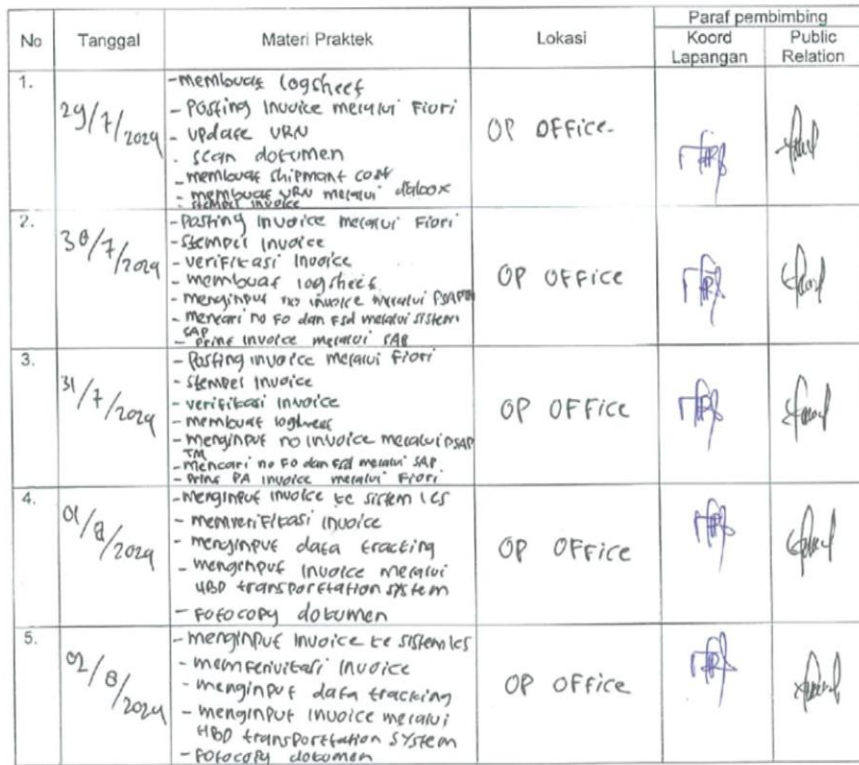 No Tanggal Materi Praktek Lokasi Paraf pembimbing
Koord Lapangan Public Relation
1. 29/7/2024 OP OFFice.
- membuat logsheet
- Posting Invoice melalui Fiori
- update VRN
. scan dokumen
- membuat shipment cost
- membuat VRN melalui
- stempel invoice
2. 30/7/2024 OP OFFice
- Posting Invoice melalui Fiori
- Stempel Invoice
- verifikasi Invoice
- membuat logsheet
- menginput no invoice melalui
- mencari no Fo dan Fsd melalui sistem
SAP
- Print Invoice melalui SAP
3. 31/7/2024 OP OFFice
- Posting invoice melalui Fiori
- Stempel Invoice
- verifikasi invoice
- membuat logsheet
- menginput no invoice melalui PSAP
TM
- mencari no Fo dan Fsd melalui SAP
- Print PA invoice melalui Fiori
4. 01/8/2024 OP OFFice
- menginput invoice ke sistem ICS
- memverifikasi invoice
- menginput data tracking
- menginput Invoice melalui
HBD transporttation system
- Fotocopy dokumen
5. 02/8/2024 OP OFFice
- menginput invoice ke sistem ICS
- memferivikasi Invoice
- menginput data tracking
- menginput invoice melalui
HBD transporttation system
- Fotocopy dokumen